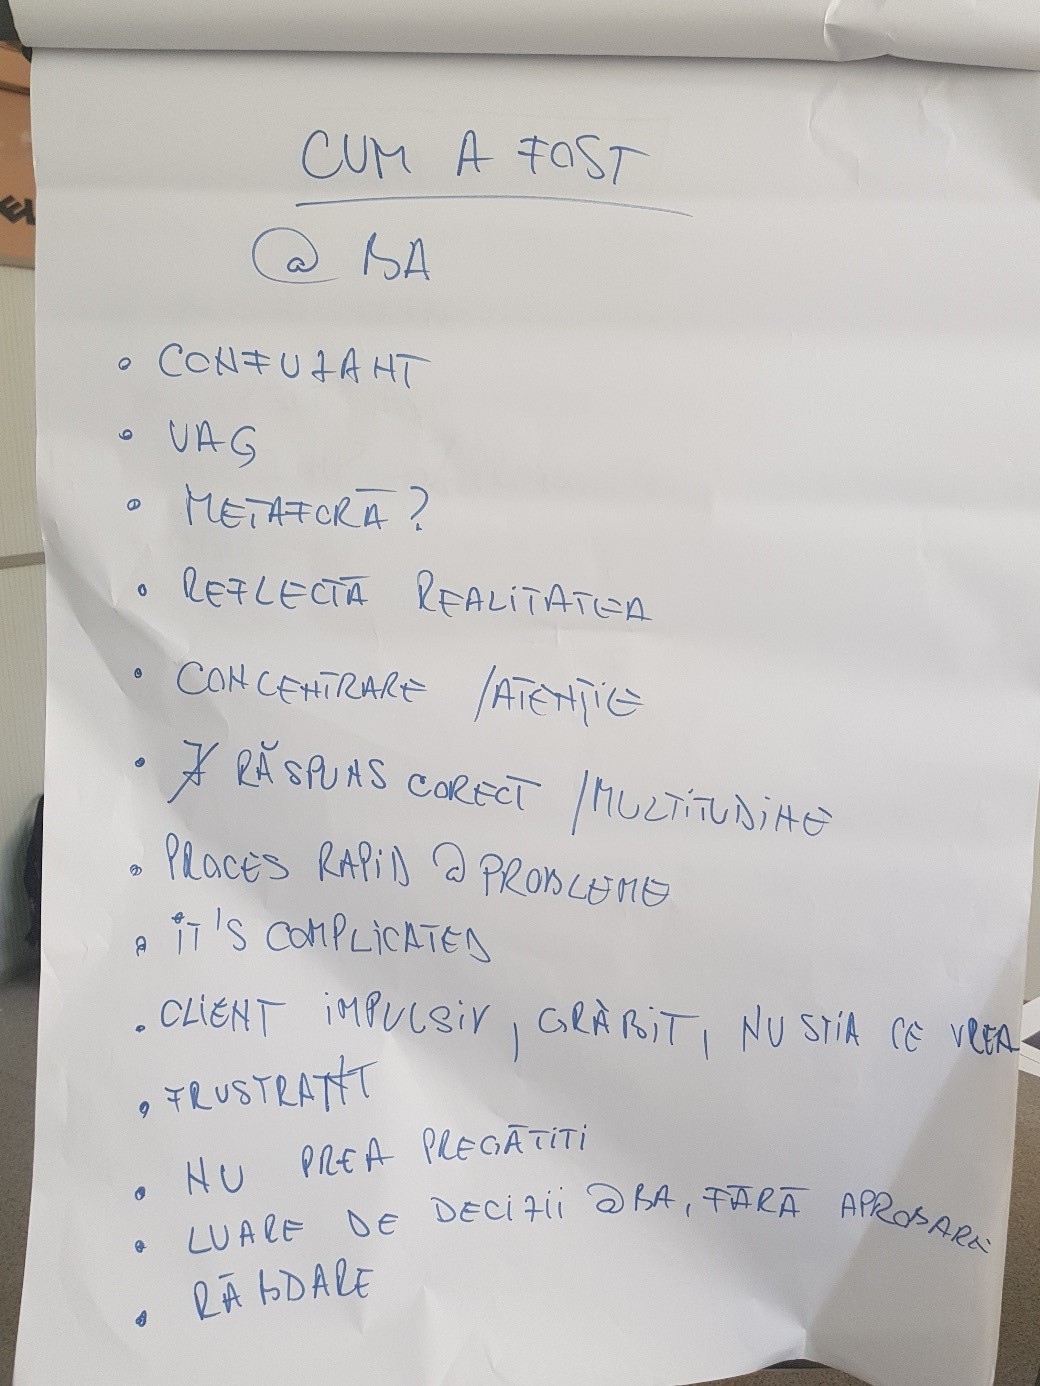 CUM A FOST
@ BA
• CONFUZANT
• VAG
• METAFORĂ?
• REFLECTĂ REALITATEA
• CONCENTRARE /ATENȚIE
• ∄ RĂSPUNS CORECT /MULTITUDINE
• PROCES RAPID @ PROBLEME
• IT'S COMPLICATED
• CLIENT IMPULSIV, GRĂBIT, NU STIA CE VREA
• FRUSTRANT
• NU PREA PREGĂTITI
• LUARE DE DECIZII @BA, FĂRĂ APROBARE
• RĂBDARE